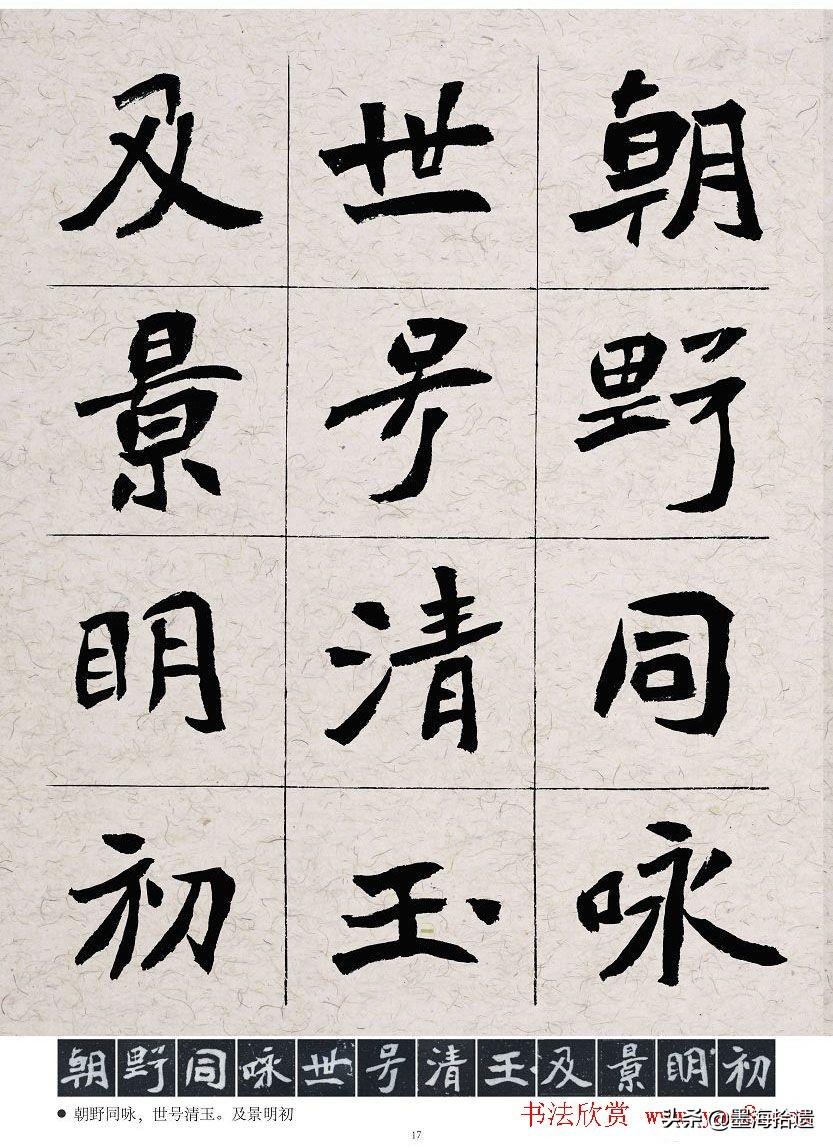 朝野同咏
世号清玉
及景明初
朝野同咏世号清玉及景明初
● 朝野同咏，世号清玉。及景明初
书法欣赏
头条@墨海拾遗
17